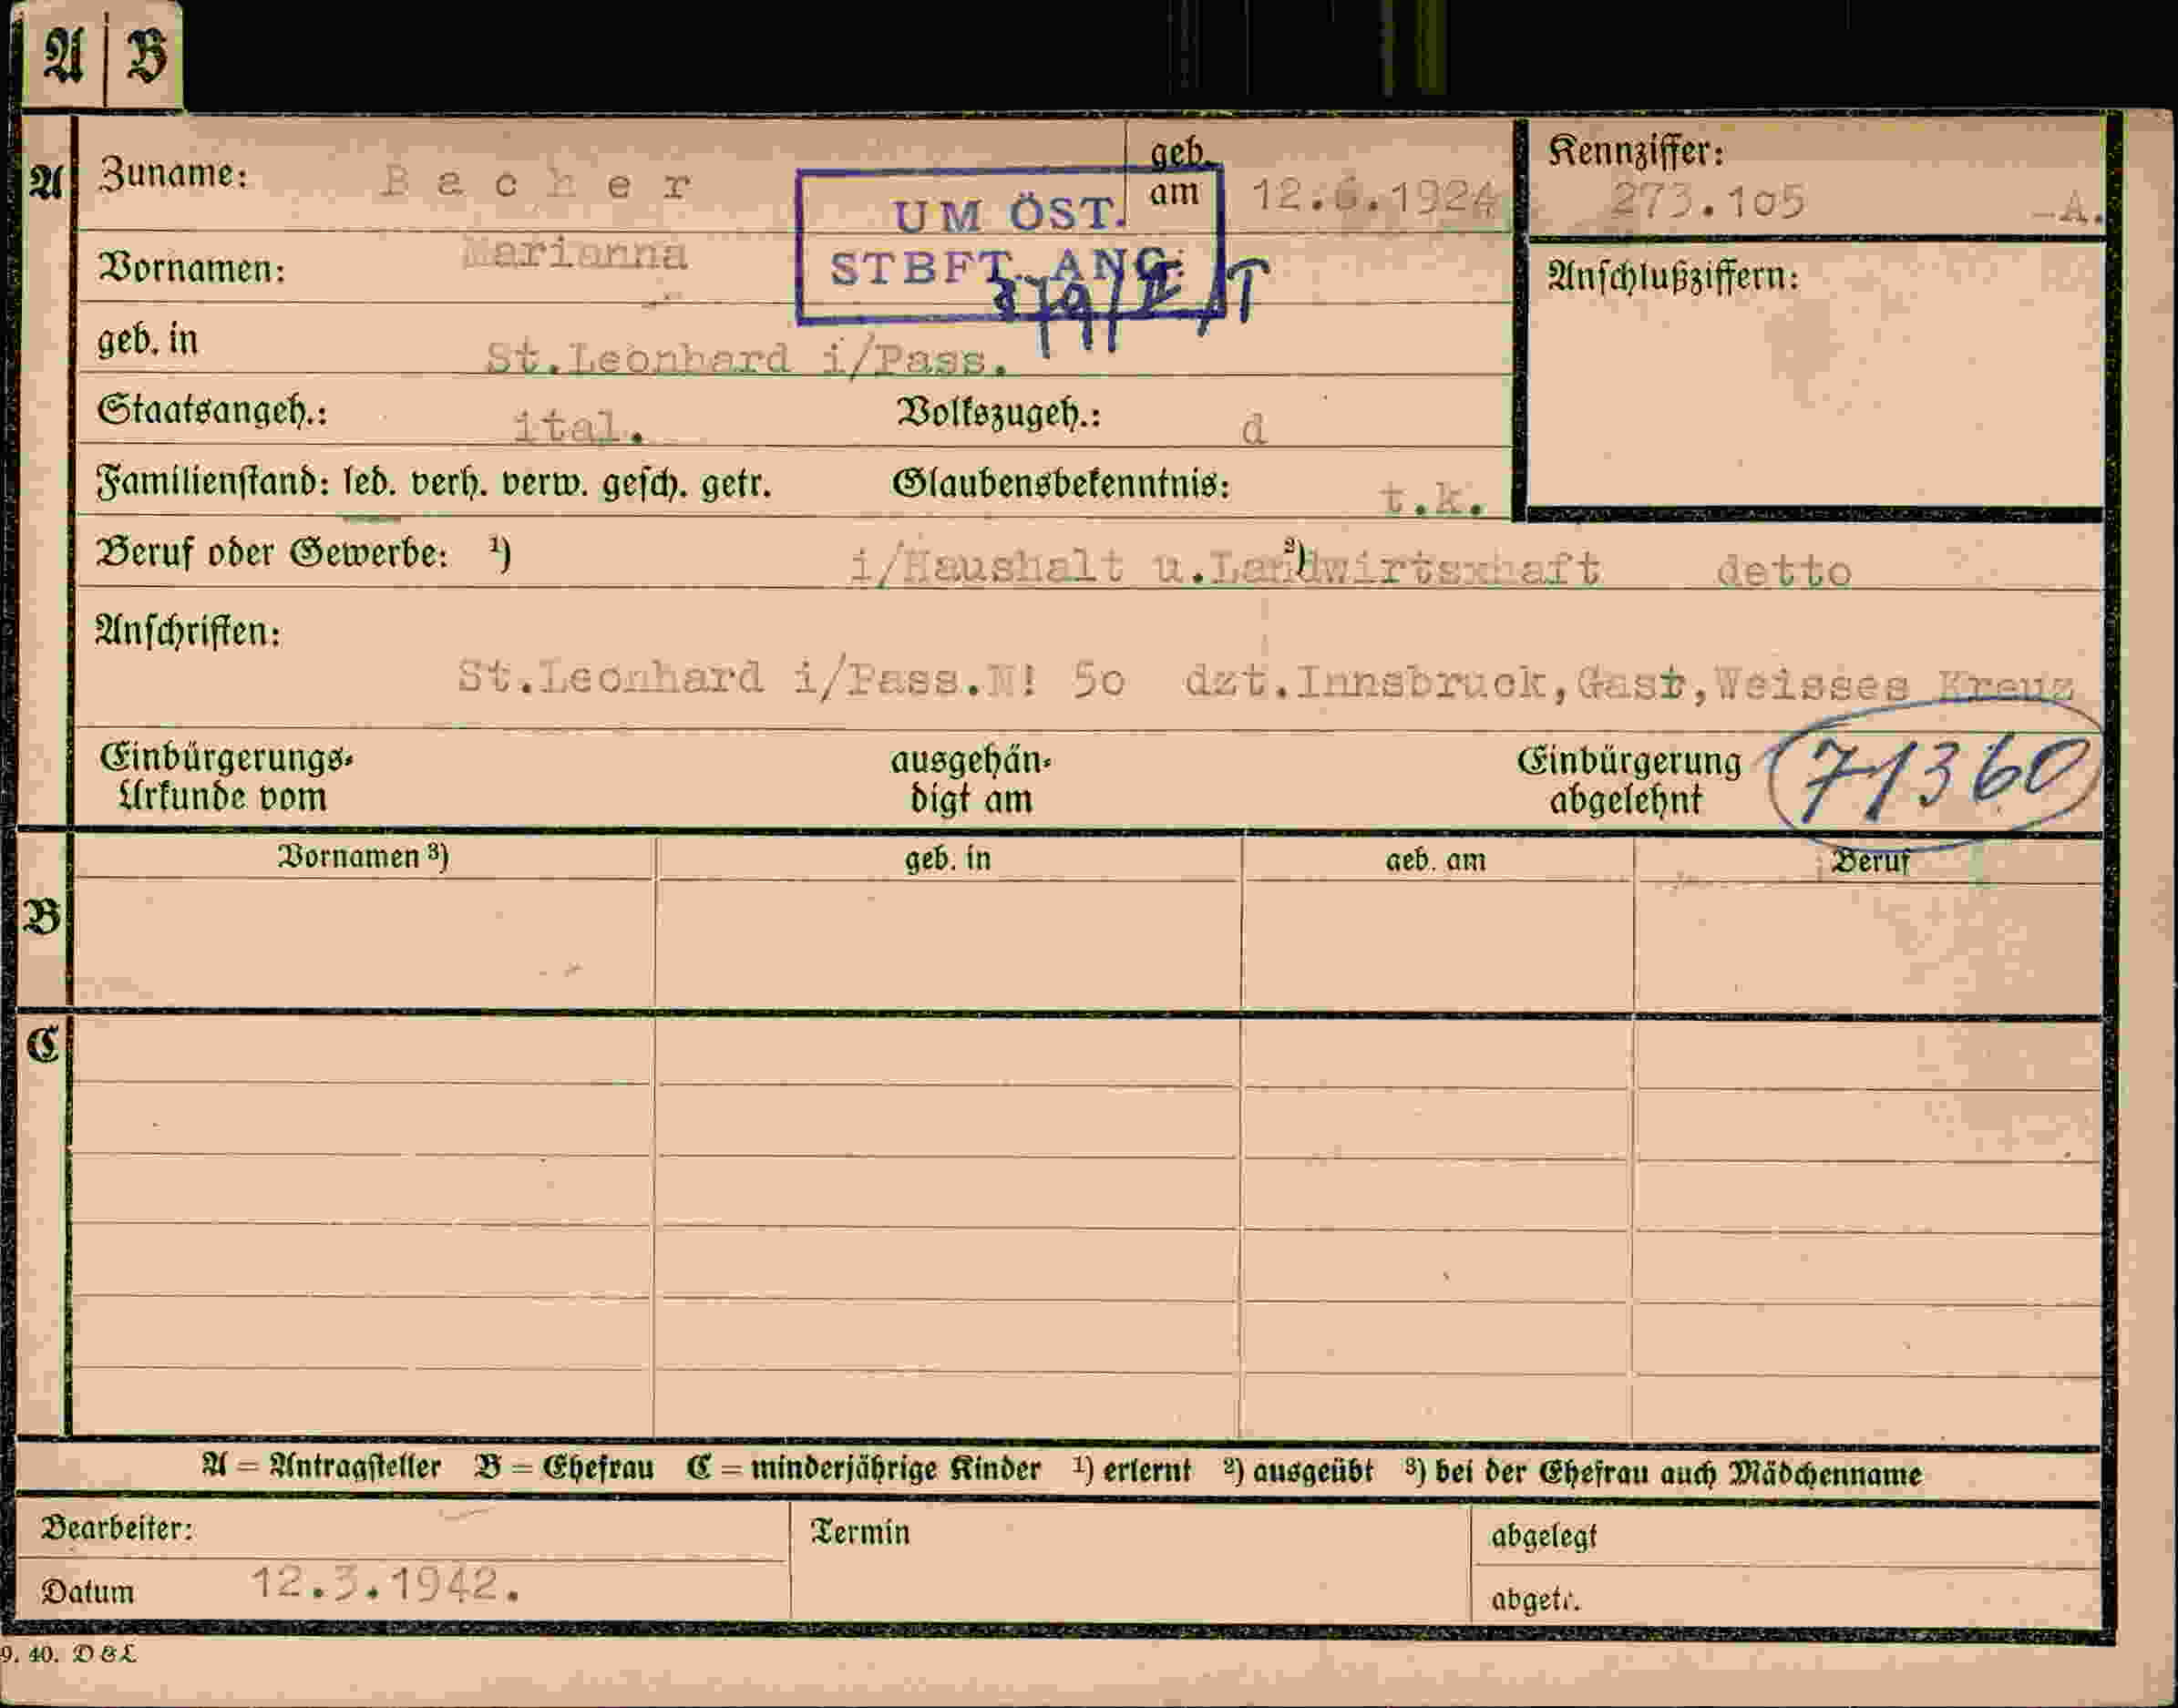 A | B
A Zuname: Bacher geb. am 12.6.1924 Kennziffer: 273.105 -A.
UM ÖST.
Vornamen: Marianna STBFT. ANG: Anschlußziffern:
geb. in St.Leonhard i/Pass.
Staatsangeh.: ital. Volkszugeh.: d
Familienstand: led. verh. verw. gesch. getr. Glaubensbekenntnis: t.k.
Beruf oder Gewerbe: ¹) i/Haushalt u.Landwirtsxhaft ²) detto
Anschriften:
St.Leonhard i/Pass.N! 50 dzt.Innsbruck,Gast,Weisses Kreuz
Einbürgerungs- ausgehän- Einbürgerung 71360
Urkunde vom digt am abgelehnt
Vornamen ³) geb. in geb. am Beruf
B
C
A = Antragsteller B = Ehefrau C = minderjährige Kinder ¹) erlernt ²) ausgeübt ³) bei der Ehefrau auch Mädchenname
Bearbeiter: Termin abgelegt
Datum 12.3.1942. abgetr.
9. 40. D & L